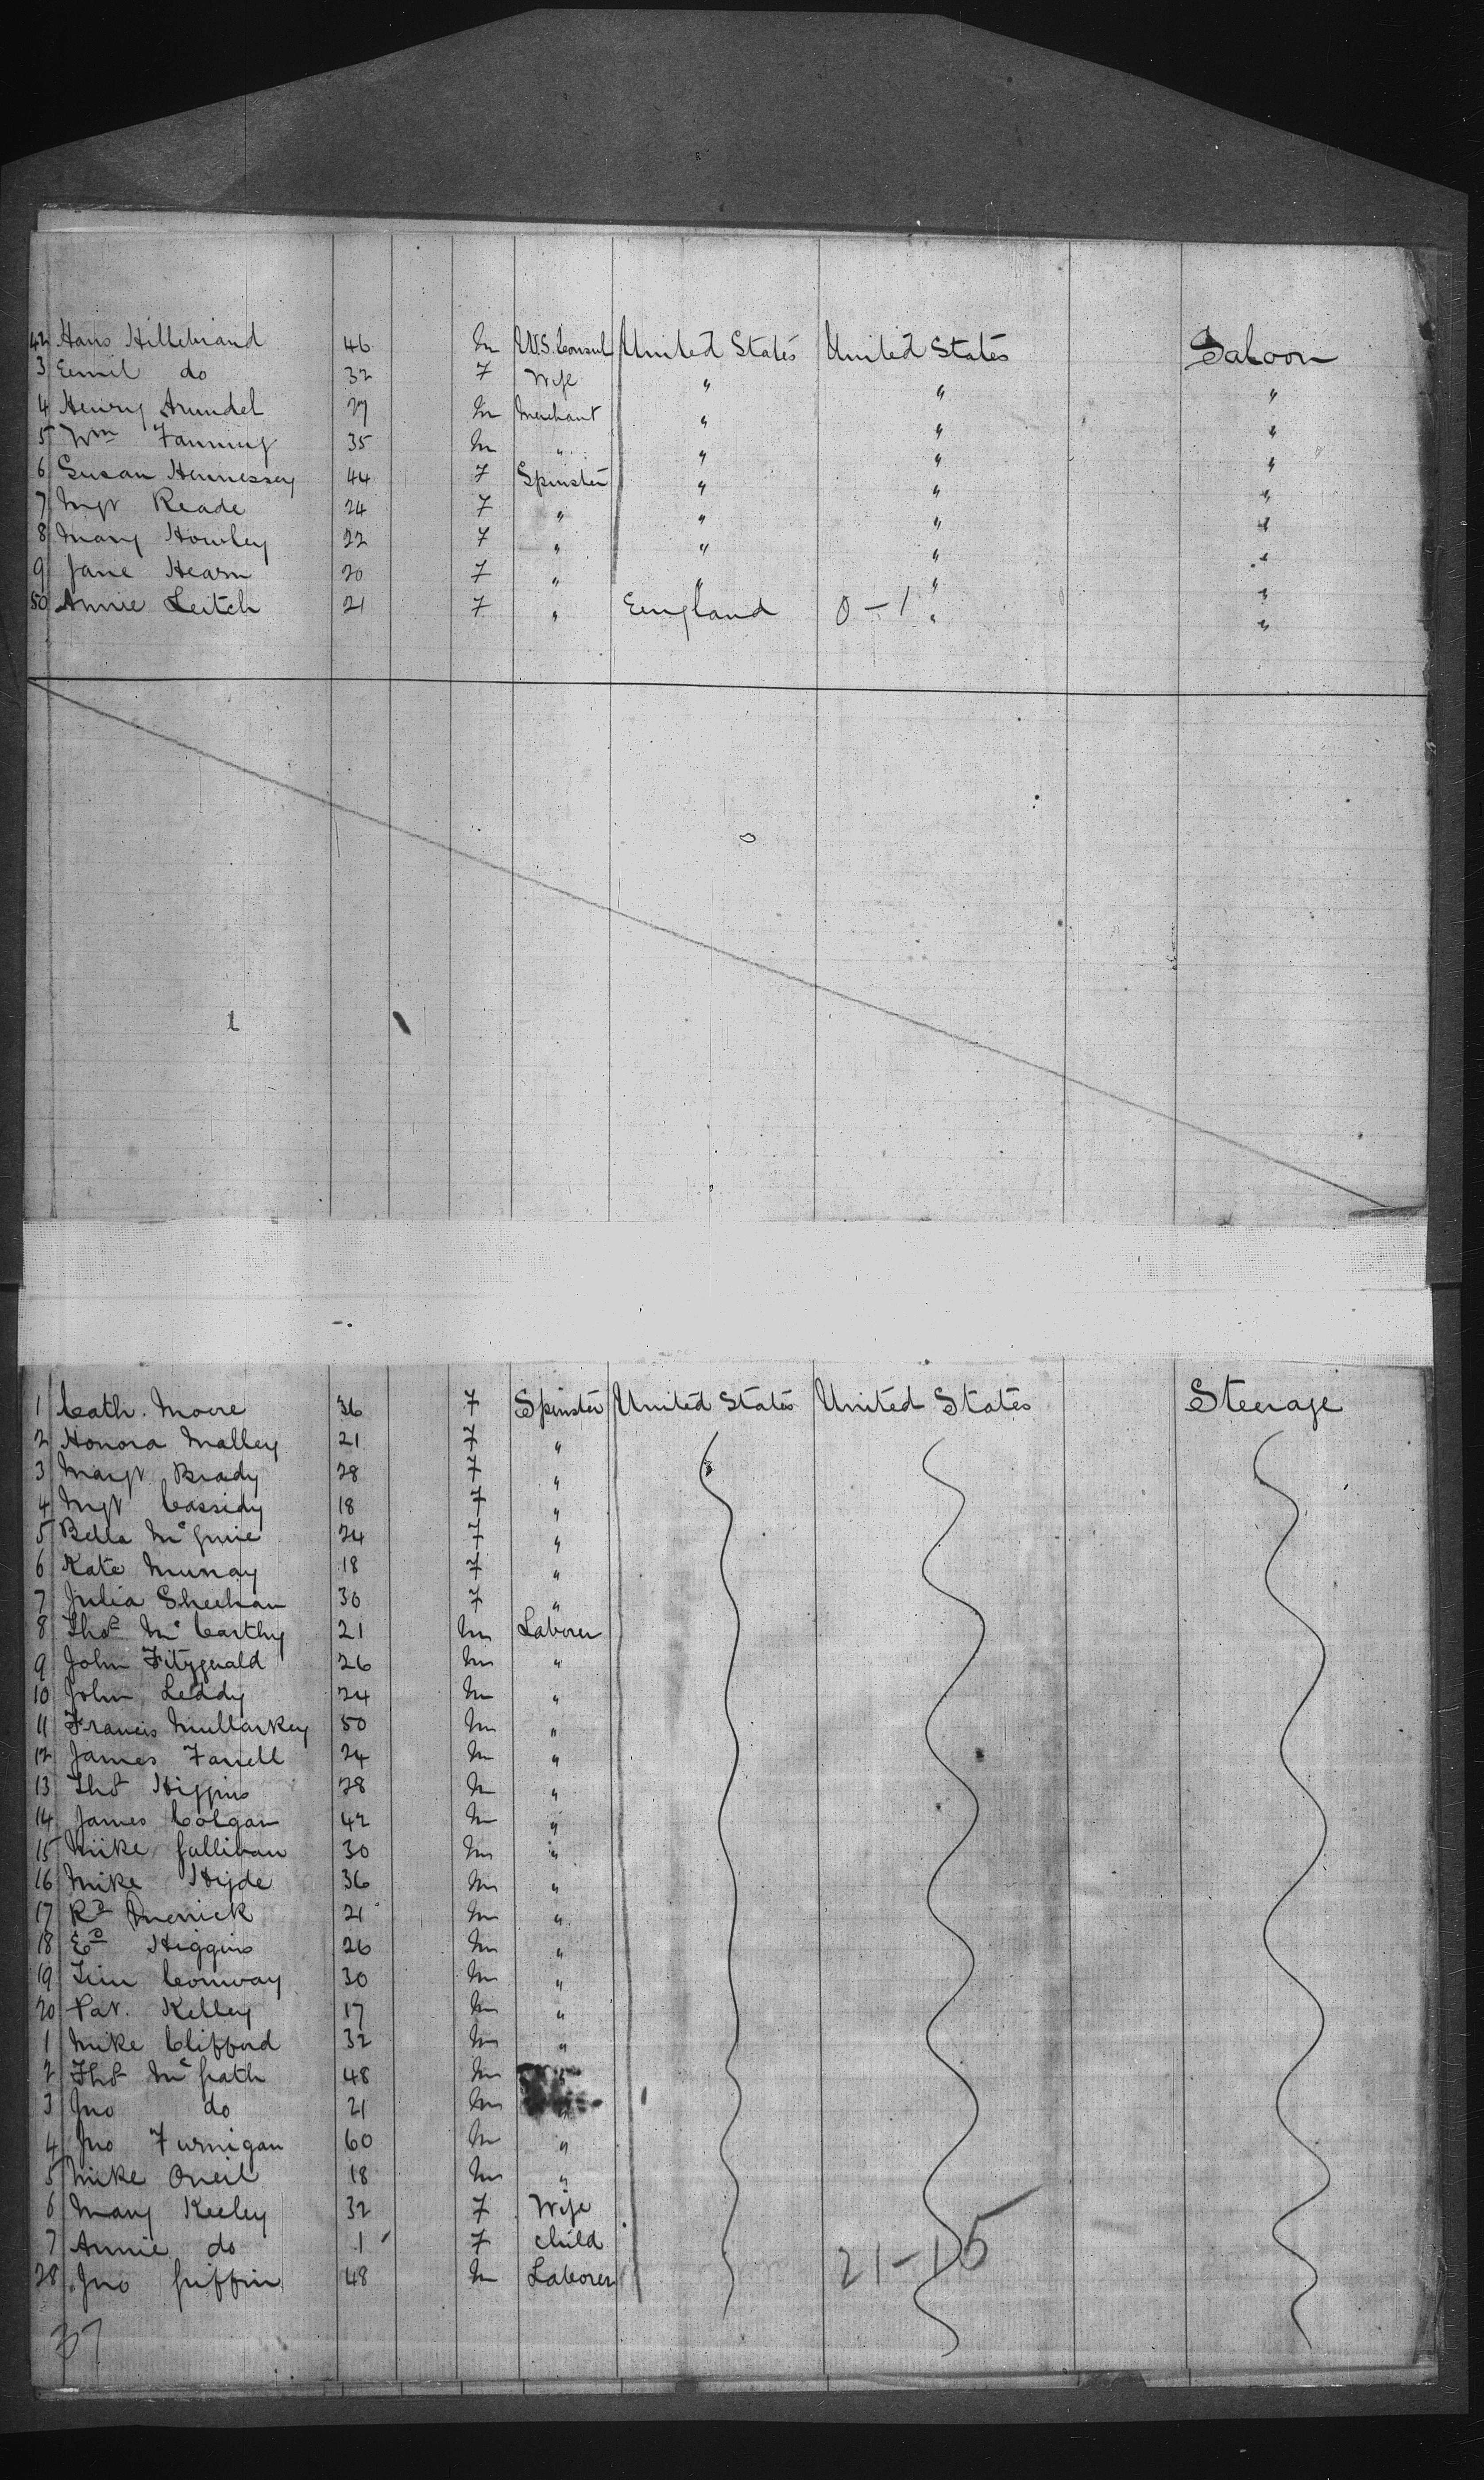 42 Hans Hillebrand 46 m U.S. Consul United States United States Saloon
3 Emil do 32 F Wife " " "
4 Henry Arundel 27 m Merchant " " "
5 Wm Fanning 35 m " " " "
6 Susan Hennessey 44 F Spinster " " "
7 Mgt Reade 24 F " " " "
8 Mary Howley 22 F " " " "
9 Jane Hearn 20 F " " " "
50 Annie Leitch 21 F " England 0-1 " "
1 Cath. Moore 36 F Spinster United States United States Steerage
2 Honora Malley 21 F "
3 Margt Brady 28 F "
4 Mgt Cassidy 18 F "
5 Bella McGuire 24 F "
6 Kate Murray 18 F "
7 Julia Sheehan 30 F "
8 Thos McCarthy 21 m Laborer
9 John Fitzgerald 26 m "
10 John Leddy 24 m "
11 Francis Mullarkey 50 m "
12 James Farrell 24 m "
13 Thos Higgins 28 m "
14 James Colgan 42 m "
15 Mike Gallivan 30 m "
16 Mike Hyde 36 m "
17 Rd Merrick 21 m "
18 Ed Higgins 26 m "
19 Tim Conway 30 m "
20 Pat. Kelley 17 m "
1 Mike Clifford 32 m "
2 Thos McGath 48 m "
3 Jno do 21 m "
4 Jno Furnigan 60 m "
5 Mike Oneil 18 m "
6 Mary Keeley 32 F Wife
7 Annie do 1 F Child
28 Jno Griffin 48 m Laborer 21-15
37